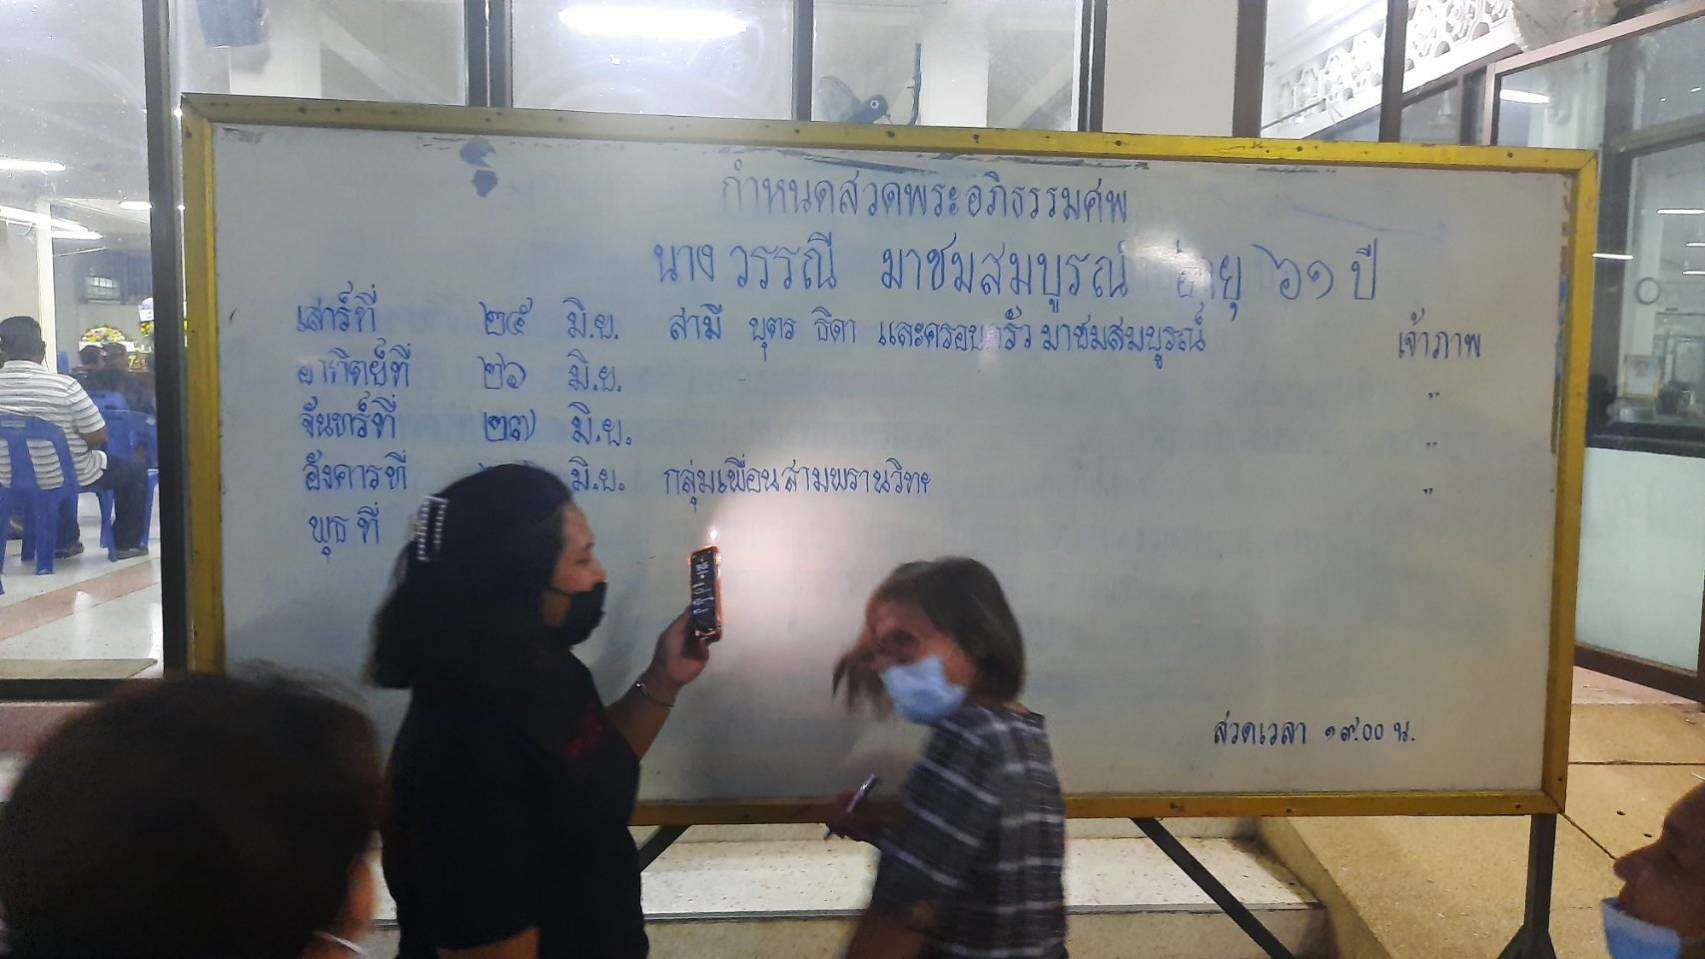 กำหนดสวดพระอภิธรรมศพ
นาง วรรณี มาชมสมบูรณ์ อายุ ๖๑ ปี
เสาร์ที่ ๒๕ มิ.ย. สามี บุตร ธิดา และครอบครัว มาชมสมบูรณ์ เจ้าภาพ
อาทิตย์ที่ ๒๖ มิ.ย. "
จันทร์ที่ ๒๗ มิ.ย. "
อังคารที่ มิ.ย. กลุ่มเพื่อนสามพรานวิทย "
พุธที่
สวดเวลา ๑๙.๐๐ น.